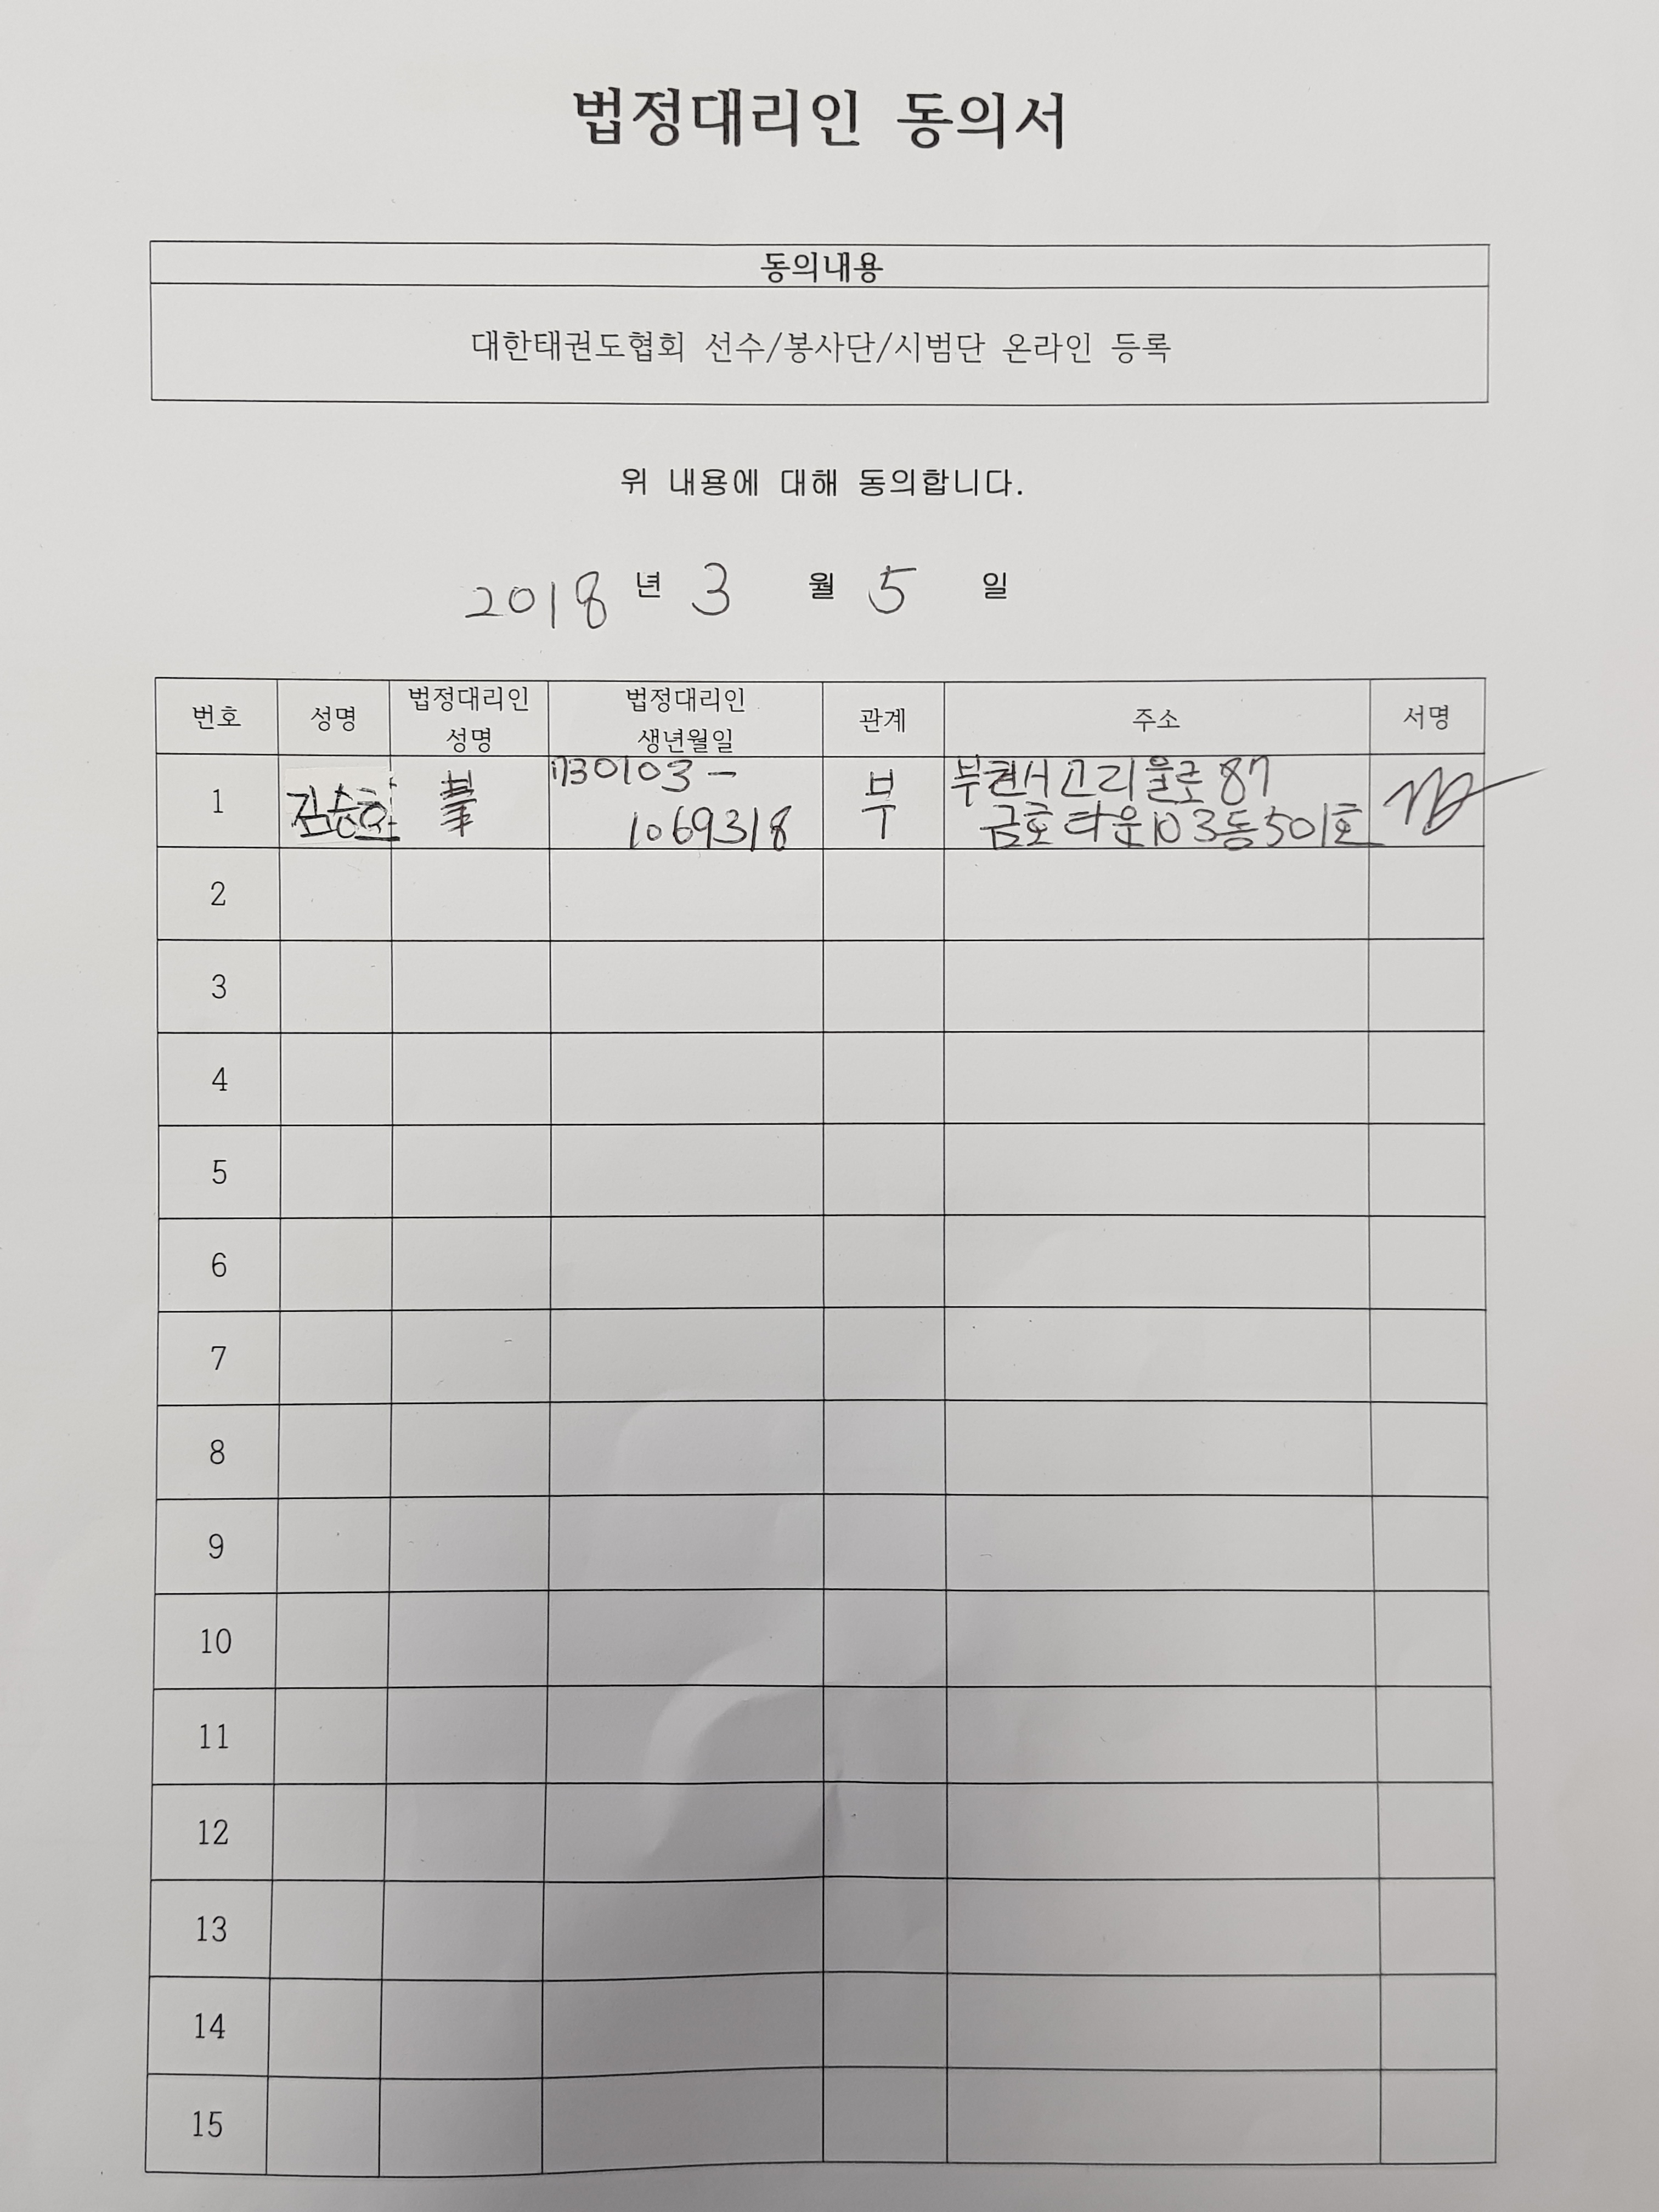 법정대리인 동의서
동의내용
대한태권도협회 선수/봉사단/시범단 온라인 등록
위 내용에 대해 동의합니다.
2018 년 3 월 5 일
번호 성명 법정대리인 성명 법정대리인 생년월일 관계 주소 서명
1 부
730103-
1069318
고리울로 87
금호타운 103동 501호
2
3
4
5
6
7
8
9
10
11
12
13
14
15